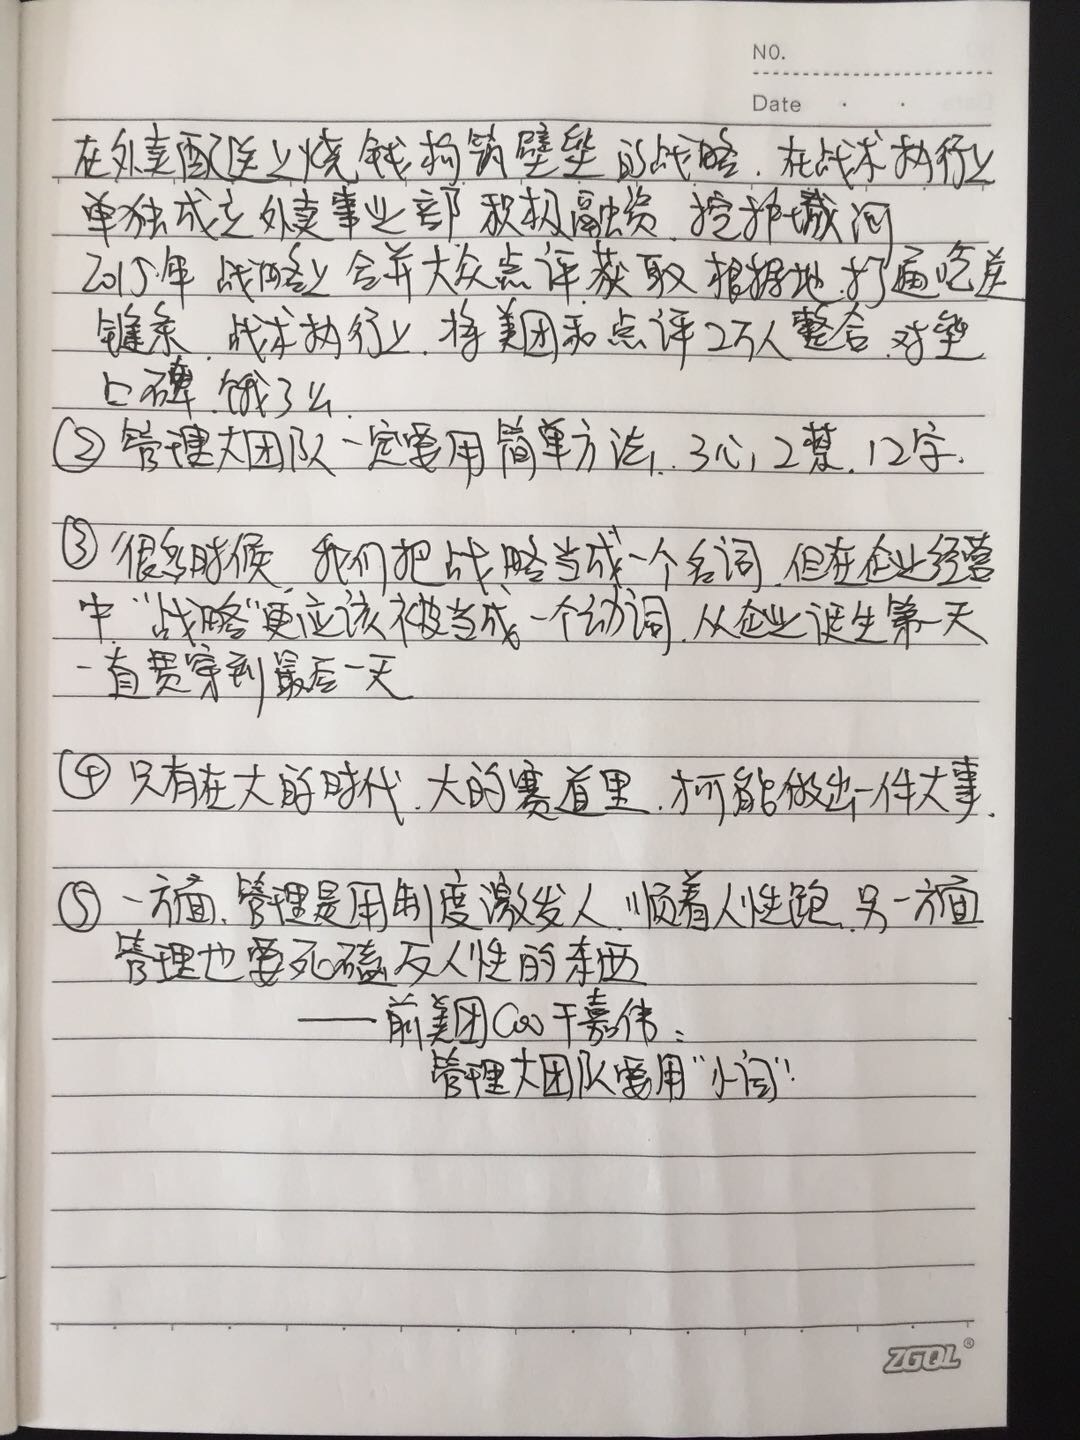 NO.
Date
在外卖配送上烧钱构筑壁垒的战略.在战术执行上
单独成立外卖事业部积极融资.挖护城河
2015年战略上合并大众点评获取根据地.打通吃
链条.战术执行上.将美团和点评2万人整合.对垒
口碑.饿了么.
② 管理大团队一定要用简单方法.3心,2慧.12字.
③ 很多时候,我们把战略当成一个名词.但在企业经营
中"战略"更应该被当成一个动词.从企业诞生第一天
一直贯穿到最后一天
④ 只有在大的时代.大的赛道里.才可能做出一件大事.
⑤ 一方面.管理是用制度激发人.顺着人性跑.另一方面
管理也要死磕反人性的东西
——前美团COO干嘉伟:
管理大团队要用"小词".
ZGQL®